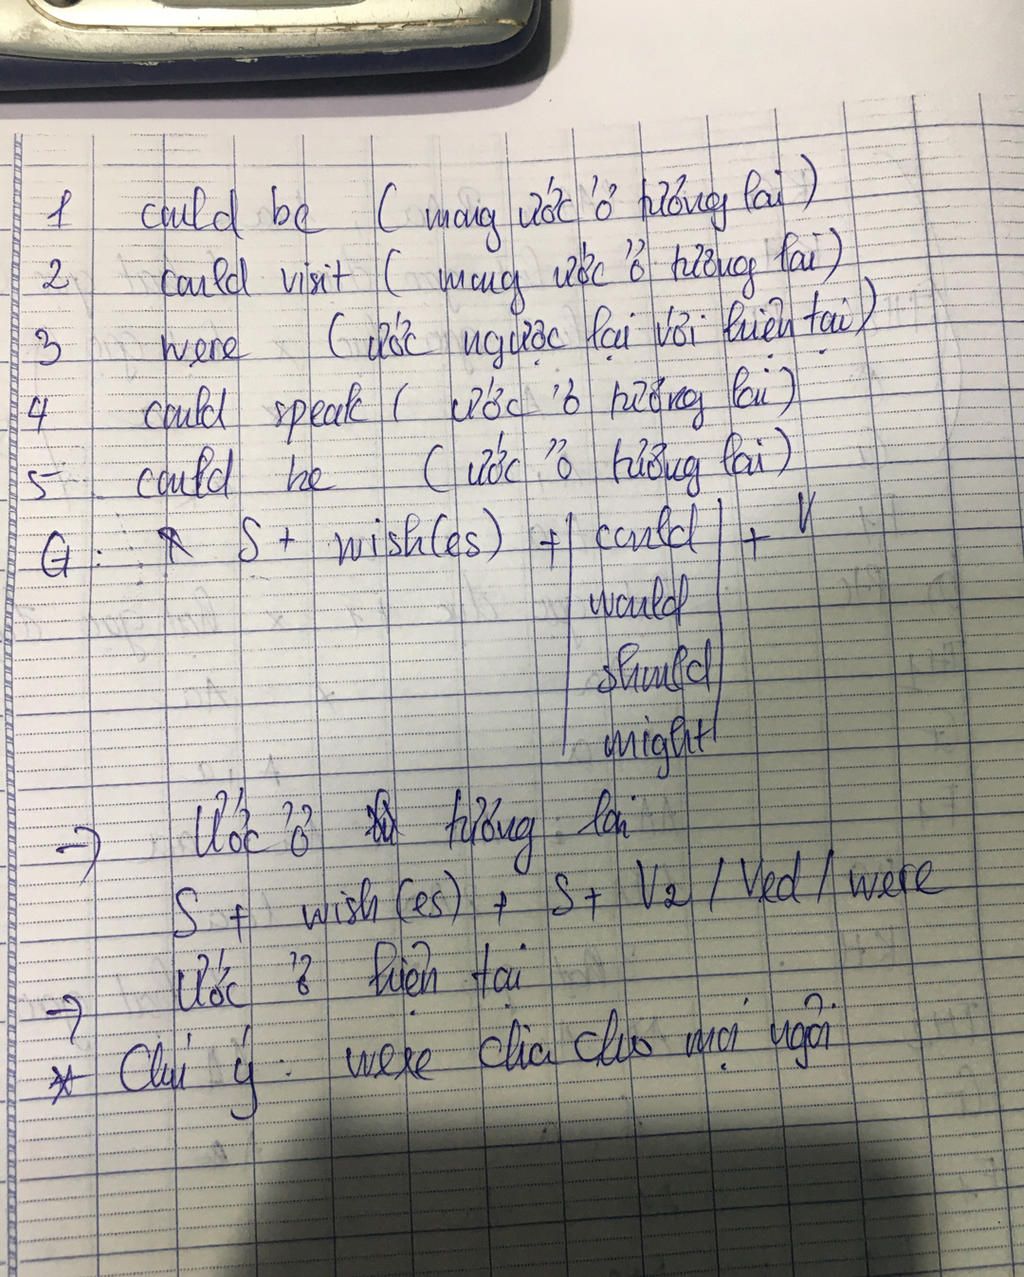 1 could be ( mong ước ở tương lai )
2 could visit ( mong ước ở tương lai )
3 were ( ước ngược lại với hiện tại )
4 could speak ( ước ở tương lai )
5 could be ( ước ở tương lai )
G: S + wish(es) + | could | + V
would
should
might
→ Ước ở tương lai
S + wish(es) + S + V2 / Ved / were
→ Ước ở hiện tại
* Chú ý : were chia cho mọi ngôi